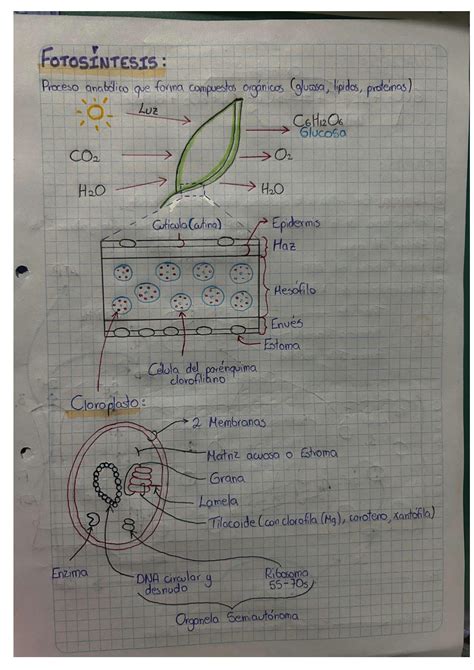 FOTOSÍNTESIS:
Proceso anabólico que forma compuestos orgánicos (glucosa, lípidos, proteínas)
Luz
C6H12O6
Glucosa
CO2
O2
H2O
H2O
Cutícula (cutina)
Epidermis
Haz
Mesófilo
Envés
Estoma
Célula del parénquima
clorofiliano
Cloroplasto:
2 Membranas
Matriz acuosa o Estroma
Grana
Lamela
Tilacoide (con clorofila (Mg), caroteno, xantófila)
Enzima
DNA circular y
desnudo
Ribosoma
55-70s
Organela Semiautónoma